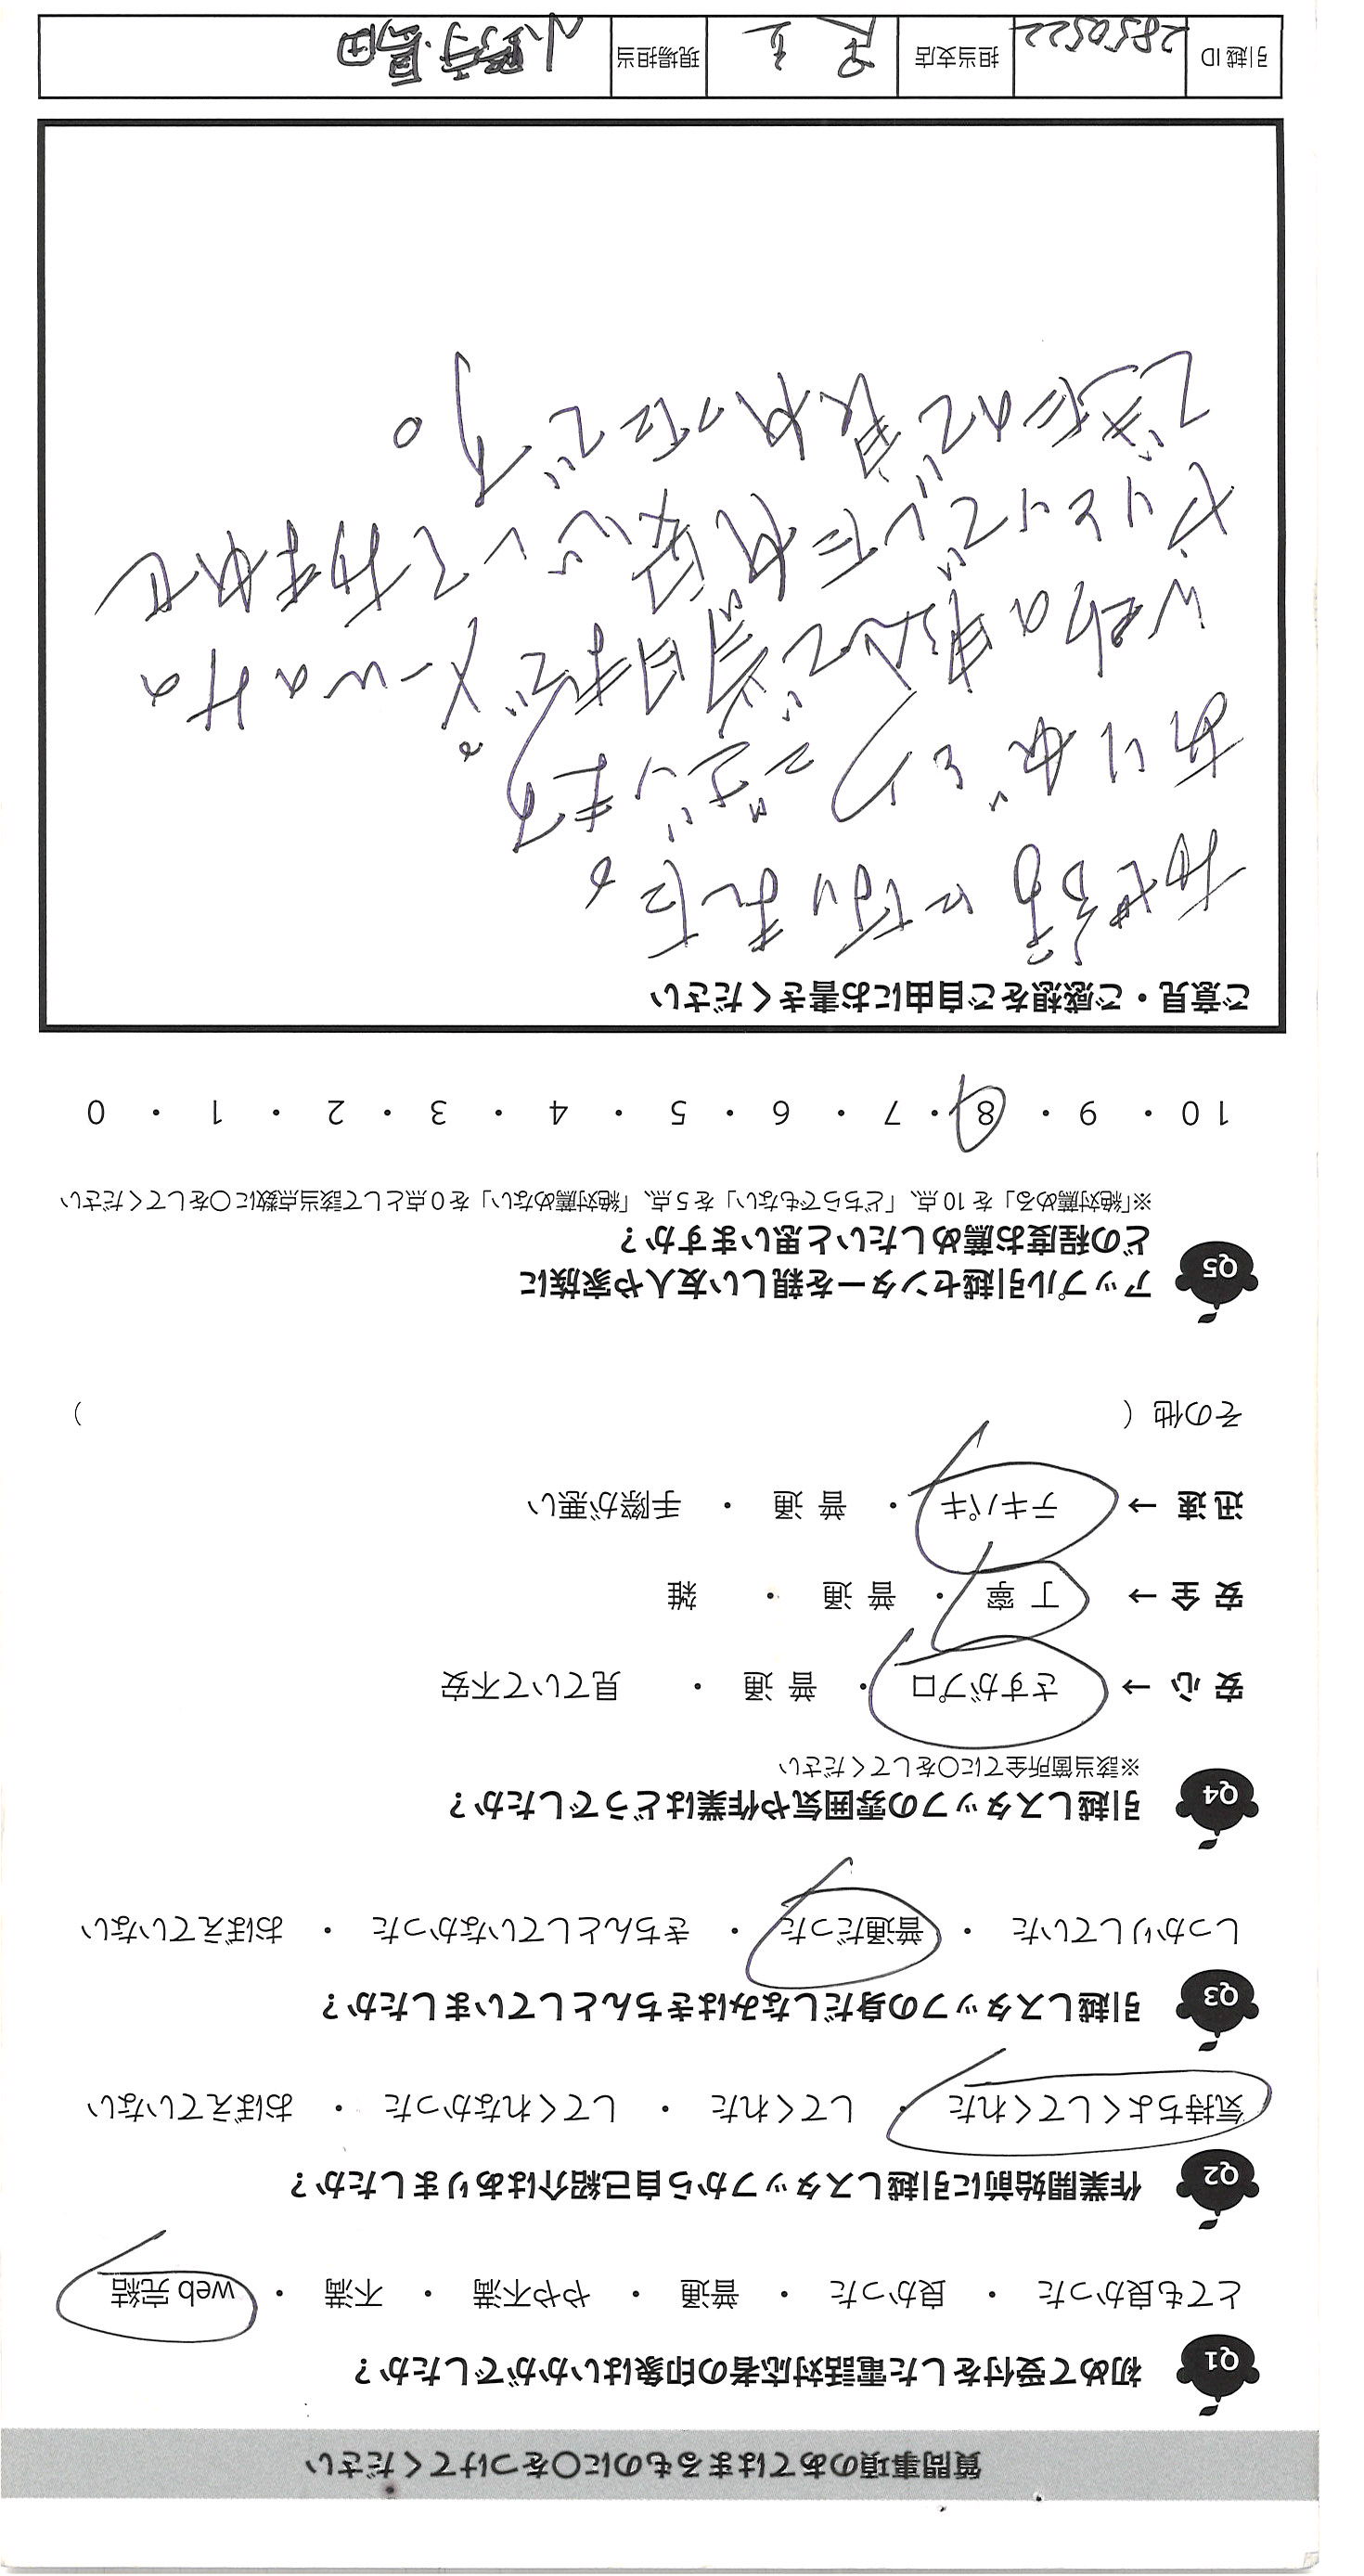 質問事項のあてはまるものに○をつけてください
Q1 初めて受付をした電話対応者の印象はいかがでしたか？
とても良かった ・ 良かった ・ 普通 ・ やや不満 ・ 不満 ・ web 完結
Q2 作業開始前に引越しスタッフから自己紹介はありましたか？
気持ちよくしてくれた ・ してくれた ・ してくれなかった ・ おぼえていない
Q3 引越しスタッフの身だしなみはきちんとしていましたか？
しっかりしていた ・ 普通だった ・ きちんとしていなかった ・ おぼえていない
Q4 引越しスタッフの雰囲気や作業はどうでしたか？
※該当箇所全てに○をしてください
安 心 → さすがプロ ・ 普 通 ・ 見ていて不安
安 全 → 丁 寧 ・ 普 通 ・ 雑
迅 速 → テキパキ ・ 普 通 ・ 手際が悪い
その他 （ ）
Q5 アップル引越センターを親しい友人や家族に
どの程度お薦めしたいと思いますか？
※「絶対薦める」を 10 点、「どちらでもない」を 5 点、「絶対薦めない」を 0 点として該当点数に○をしてください
10 ・ 9 ・ 8 ・ 7 ・ 6 ・ 5 ・ 4 ・ 3 ・ 2 ・ 1 ・ 0
ご意見・ご感想をご自由にお書きください
お世話になりました。
ございます。
です。
引越 ID 2850522 担当支店 現場担当